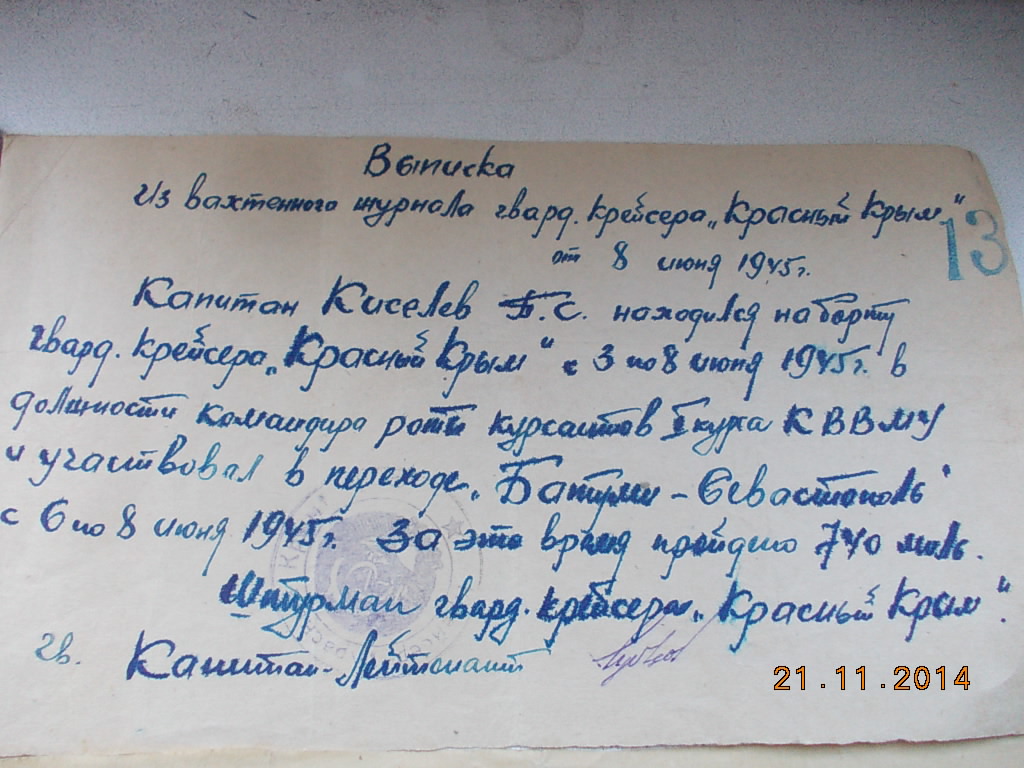 Выписка
Из вахтенного журнала гвард. крейсера „Красный Крым"
от 8 июня 1945г.
13
Капитан Киселев Б.С. находился на борту
гвард. крейсера „Красный Крым" с 3 по 8 июня 1945г. в
должности командира роты курсантов I курса КВВМУ
и участвовал в переходе „Батуми - Севастополь"
с 6 по 8 июня 1945г. За это время пройдено 740 миль.
Штурман гвард. крейсера „Красный Крым".
гв. Капитан-Лейтенант
21.11.2014